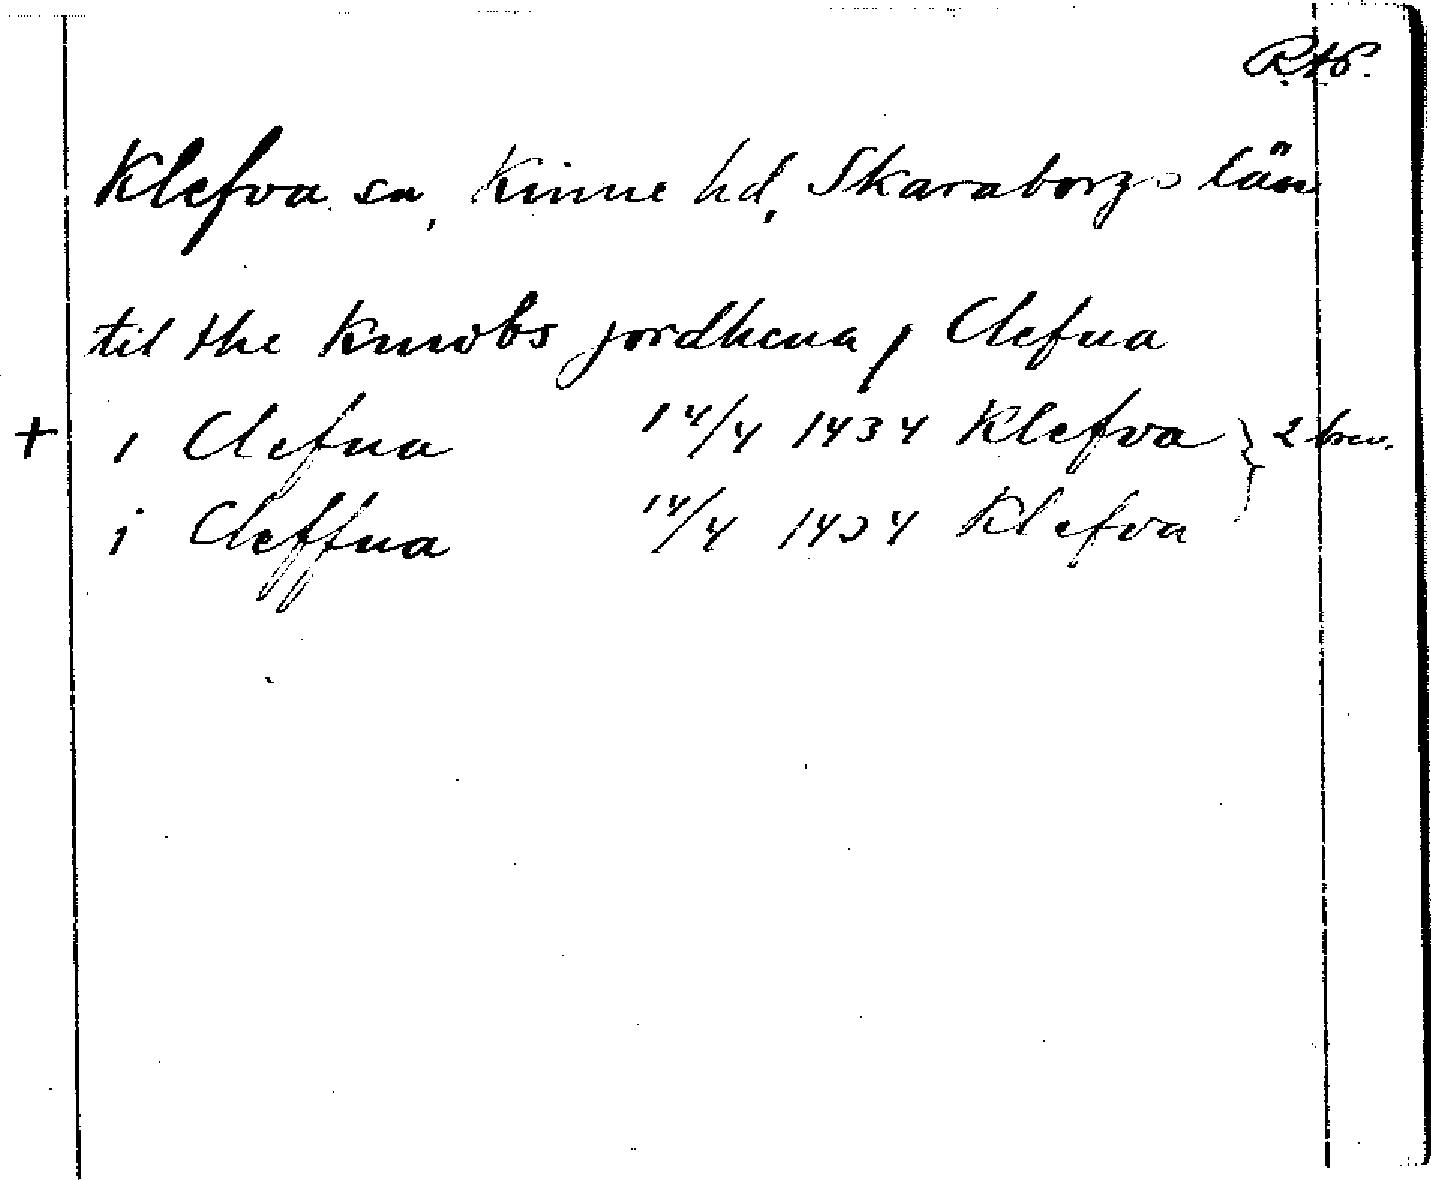 RAP.
Klefva sn, Kinne hd, Skaraborgs län
til the knwbs jordhena j Clefua
+ i Clefua 14/4 1434 Klefva } 2 brev.
i Cleffua 14/4 1434 Klefva